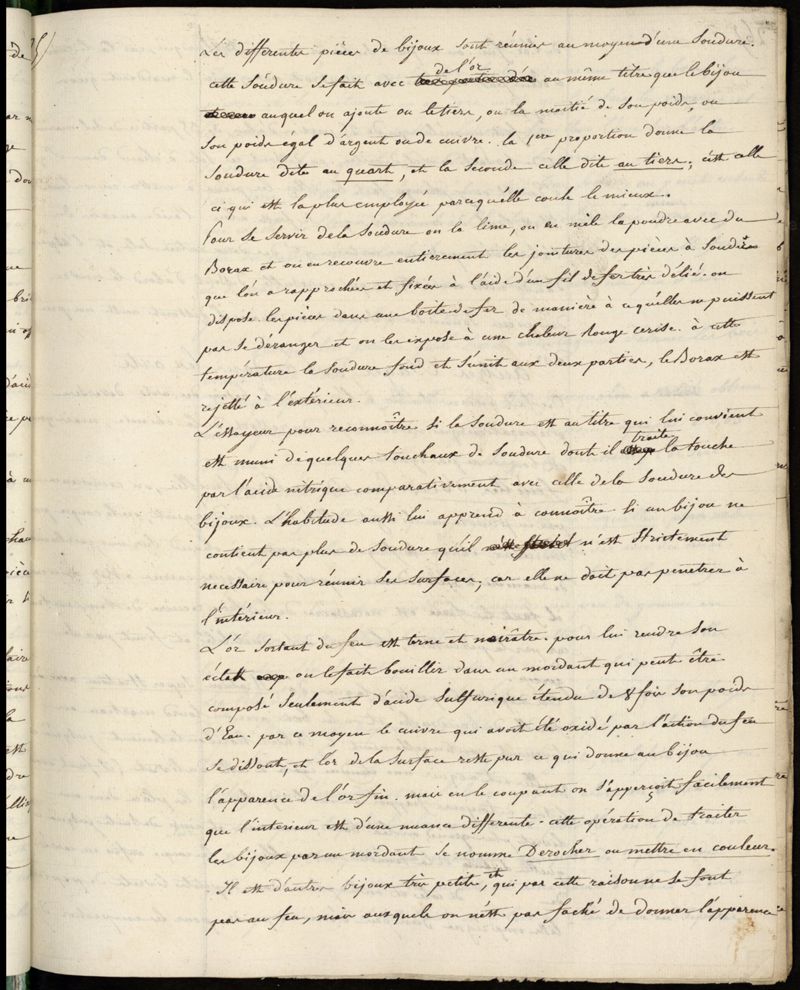 Les differentes pièces de bijoux sont réunies au moyen d'une Soudure.
cette Soudure se fait avec de l'or au même titre que le bijou
auquel on ajoute ou le tiers, ou la moitié de son poids, ou
son poids égal d'argent ou de cuivre. la 1ere proportion donne la
Soudure dite au quart, et la seconde celle dite au tiers; c'est celle
ci qui est la plus employée parcequ'elle coule le mieux.
Pour se servir de la Soudure on la lime, on en mêle la poudre avec du
Borax et on en recouvre entierement les jointures des pieces à Souder
que l'on a rapprochées et fixées à l'aide d'un fil de fer très délié. on
dispose les pieces dans une boite de fer de manière à ce qu'elles ne puissent
pas se déranger et on les expose à une chaleur rouge cerise. à cette
température la Soudure fond et s'unit aux deux parties, le Borax est
rejetté à l'extérieur.
L'essayeur pour reconnoître si la Soudure est au titre qui lui convient
est muni de quelques touchaux de Soudure dont il traite la touche
par l'acide nitrique comparativement avec celle de la Soudure des
bijoux. L'habitude aussi lui apprend à connoître si un bijou ne
contient pas plus de Soudure qu'il n'est Strictement
necessaire pour réunir ses surfaces; car elle ne doit pas penetrer à
l'intérieur.
L'or sortant du feu est terne et noirâtre. pour lui rendre son
éclat on le fait bouillir dans un mordant qui peut être
composé Seulement d'acide Sulfurique étendu de 8 fois son poids
d'Eau. par ce moyen le cuivre qui avoit été oxidé par l'action du feu
se dissout, et l'or de la surface reste pur ce qui donne au bijou
l'apparence de l'or fin. mais en le coupant on s'apperçoit facilement
que l'interieur est d'une nuance differente. cette opération de traiter
les bijoux par un mordant se nomme Derocher ou mettre en couleur.
Il est d'autres bijoux très petits, et qui par cette raison ne se font
pas au feu, mais auxquels on n'est pas faché de donner l'apparence